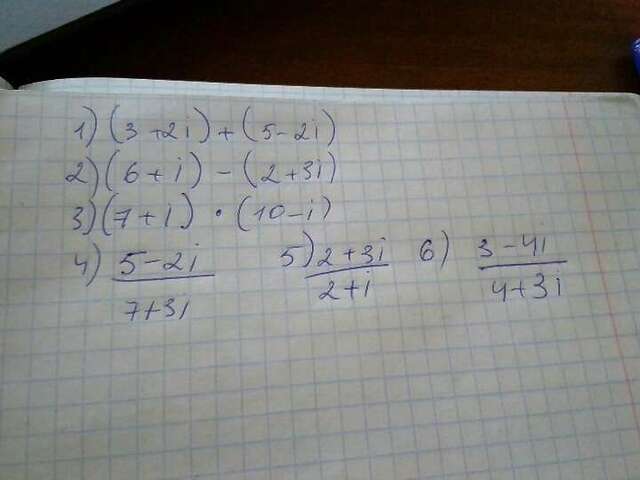 1) (3+2i)+(5-2i)
2) (6+i)-(2+3i)
3) (7+i)·(10-i)
4) 5-2i / 7+3i 5) 2+3i / 2+i 6) 3-4i / 4+3i